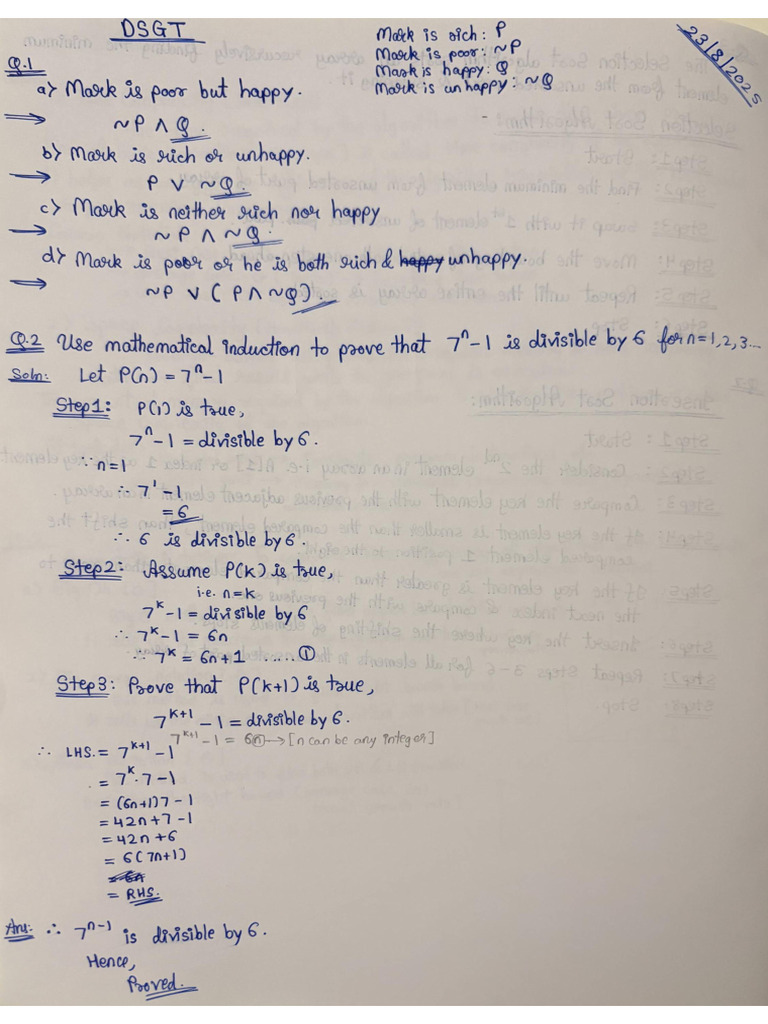 DSGT
Mark is rich : P
Mark is poor : ~P
Mark is happy : Q
Mark is unhappy : ~Q
23/8/2025
Q.1
a) Mark is poor but happy.
→ ~P ∧ Q.
b) Mark is rich or unhappy.
→ P ∨ ~Q.
c) Mark is neither rich nor happy
→ ~P ∧ ~Q.
d) Mark is poor or he is both rich & happy unhappy.
→ ~P ∨ (P ∧ ~Q).
Q.2 Use mathematical induction to prove that 7ⁿ - 1 is divisible by 6 for n = 1, 2, 3...
Soln: Let P(n) = 7ⁿ - 1
Step 1: P(1) is true,
7ⁿ - 1 = divisible by 6.
∵ n = 1
∴ 7¹ - 1
= 6
∴ 6 is divisible by 6.
Step 2: Assume P(k) is true,
i.e. n = k
7ᵏ - 1 = divisible by 6
∴ 7ᵏ - 1 = 6n
∵ 7ᵏ = 6n + 1 ....... ①
Step 3: Prove that P(k+1) is true,
7ᵏ⁺¹ - 1 = divisible by 6.
7ᵏ⁺¹ - 1 = 6ⓝ → [n can be any integer]
∴ LHS. = 7ᵏ⁺¹ - 1
= 7ᵏ · 7 - 1
= (6n+1) 7 - 1
= 42n + 7 - 1
= 42n + 6
= 6(7n+1)
= RHS.
Ans: ∴ 7ⁿ⁻¹ is divisible by 6.
Hence,
Proved.